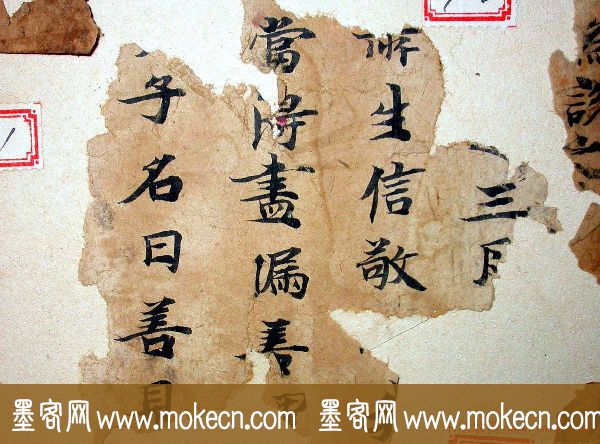 說
三
所生信敬
當得盡漏善
子名曰善
墨客网 www.mokecn.com 墨客网 www.mokecn.com